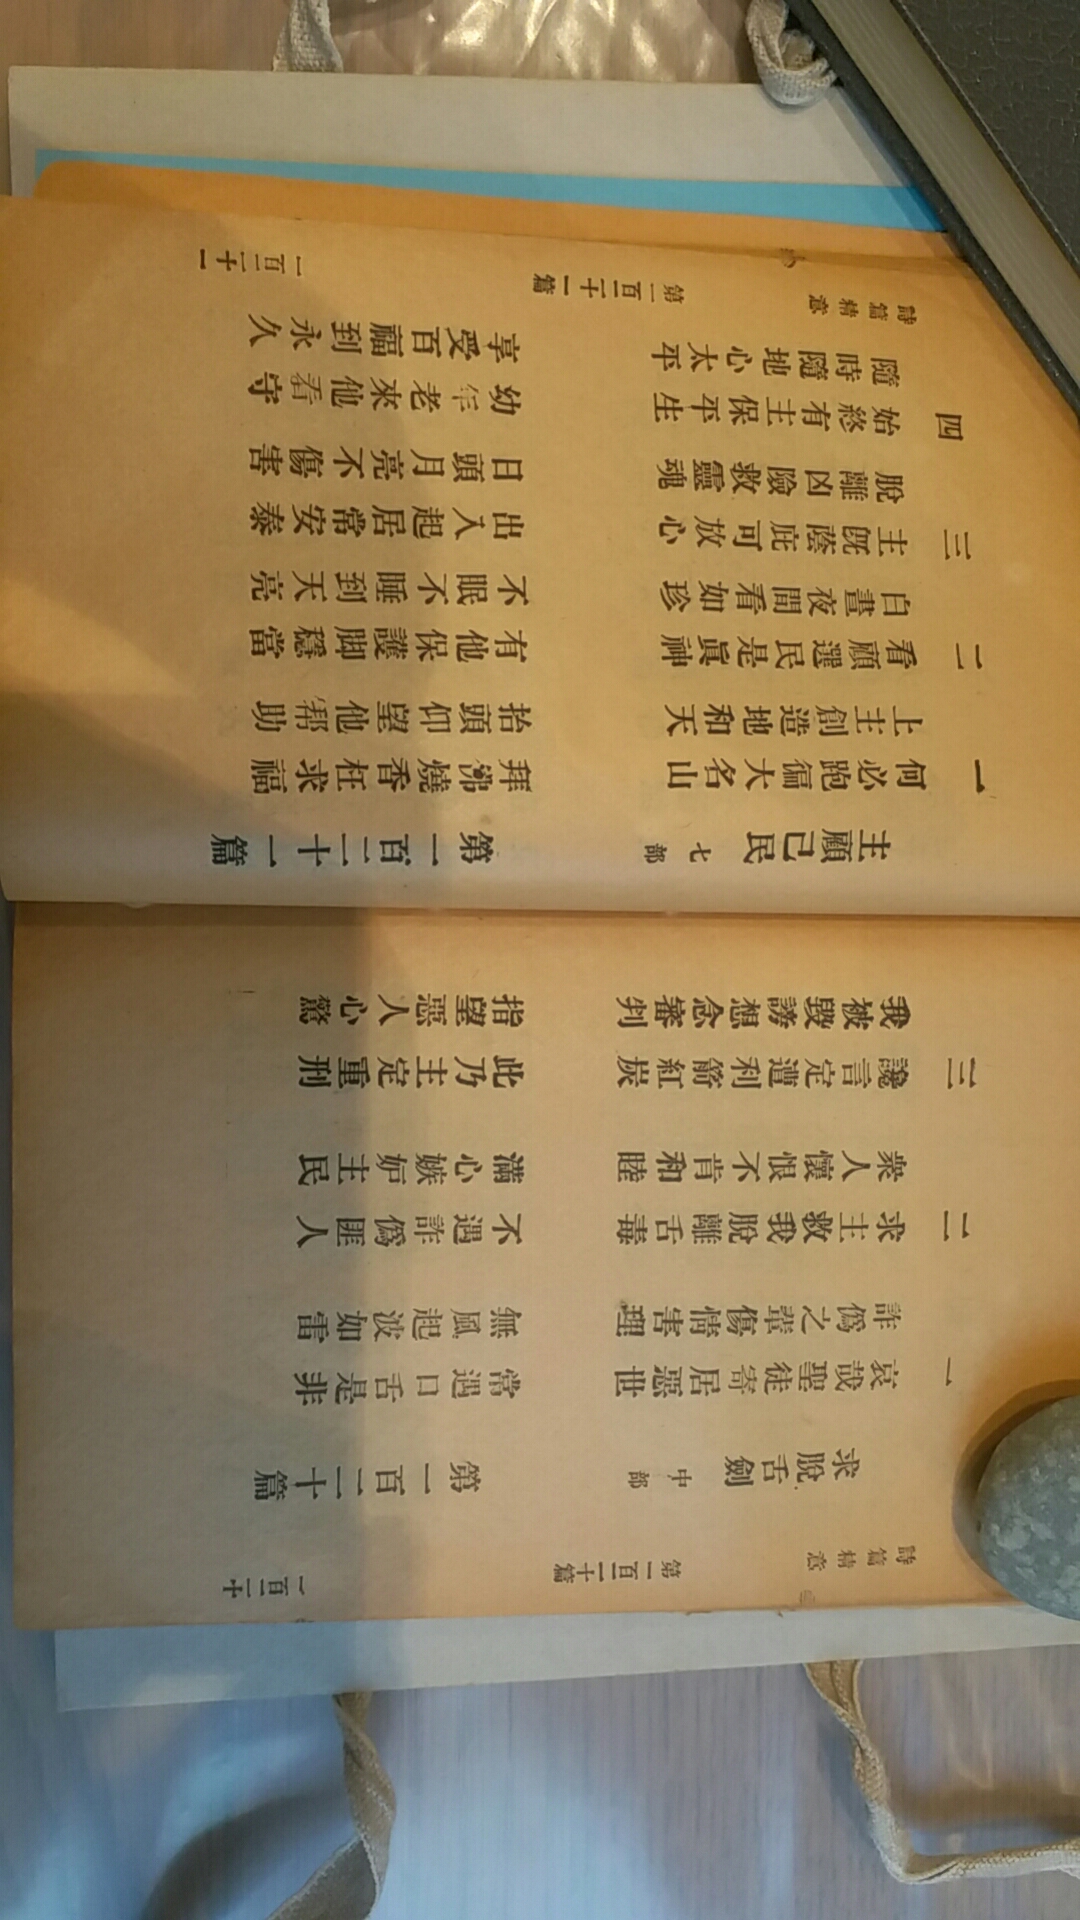 詩篇精意 第一百二十篇 一百二十
求脫舌劍 中部 第一百二十篇
一 哀哉聖徒寄居惡世 常遇口舌是非
詐偽之輩傷情害理 無風起波如雷
二 求主救我脫離舌毒 不遇詐偽匪人
衆人懷恨不肯和睦 滿心嫉妬主民
三 讒言定遭利箭紅炭 此乃主定重刑
我被毀謗想念審判 指望惡人心驚
主顧己民 七部 第一百二十一篇
一 何必跑徧大名山 拜佛燒香枉求福
上主創造地和天 抬頭仰望他幫助
二 看顧選民是眞神 有他保護脚穩當
白晝夜間看如珍 不眠不睡到天亮
三 主旣蔭庇可放心 出入起居常安泰
脫離凶險救靈魂 日頭月亮不傷害
四 始終有主保平生 幼年老來他看守
隨時隨地心太平 享受百福到永久
詩篇精意 第一百二十一篇 一百二十一